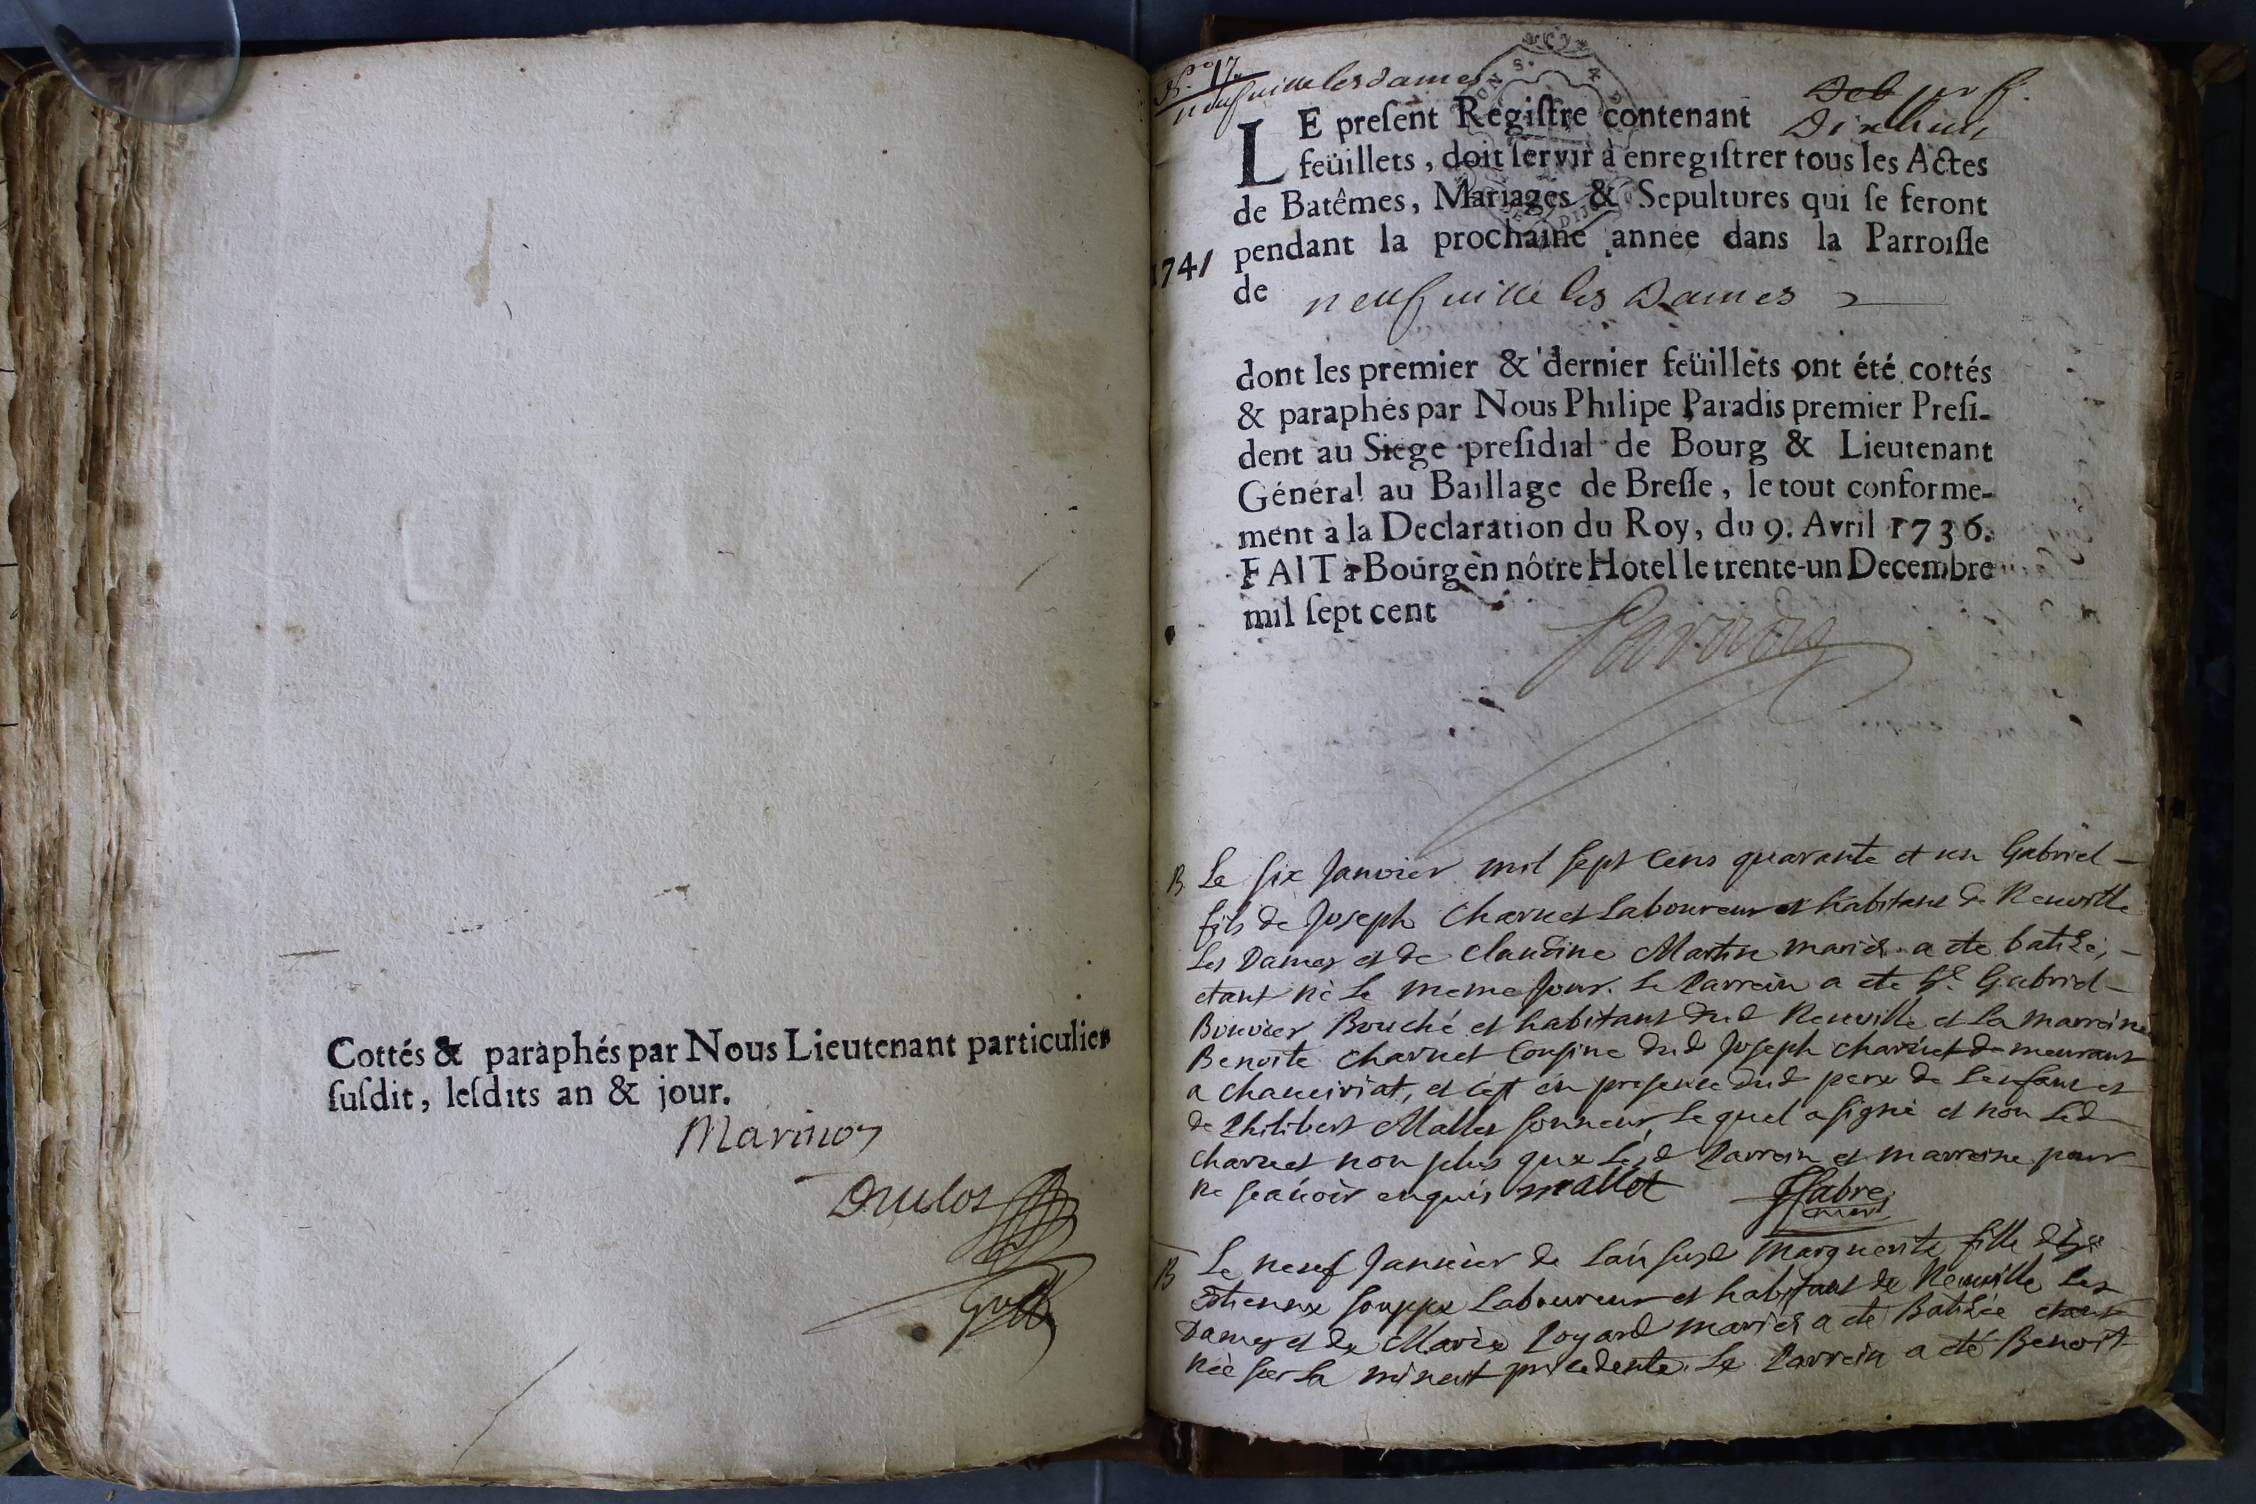 Cottés & paraphés par Nous Lieutenant particulier
ſuſdit, leſdits an & jour.
Marinon
Duclos
neufville les dames
LE preſent Regiſtre contenant Dixhuit
feüillets, doit ſervir à enregiſtrer tous les Actes
de Batêmes, Mariages & Sepultures qui ſe feront
pendant la prochaine année dans la Parroiſſe
1741
de neufville les Dames
dont les premier & dernier feüillets ont été cottés
& paraphés par Nous Philipe Paradis premier Preſi-
dent au Siege preſidial de Bourg & Lieutenant
Général au Baillage de Breſſe, le tout conforme-
ment à la Declaration du Roy, du 9. Avril 1736.
FAIT à Bourg en nôtre Hôtel le trente-un Decembre
mil ſept cent
Paradis
B Le six Janvier mil sept cens quarante et un Gabriel
fils de Joseph Charnet Laboureur et habitant de Neuville
Les Dames et de Claudine Martin mariés a ete batizé,
etant né Le meme Jour. Le Parrein a ete Sr. Gabriel
Bouvier Bouché et habitant dud Neuville et La marreine
Benoite Charnet Cousine dud Joseph Charnet demeurant
a Chaneiriat, et c'est en presence dud pere de L'enfant et
de Philibert Mallet sonneur, Le quel a signé et non Led
Charnet non plus que Lesd Parrein et marreine pour
ne sçavoir enquis mallet Fabre
curé
B Le neuf Janvier de L'an susd Marguerite fille de
Etienne Souppe Laboureur et habitant de Neuville Les
Dames et de Marie Poyard mariés a eté Batizée etant
née sur La minuit precedente. Le Parrein a eté Benoit